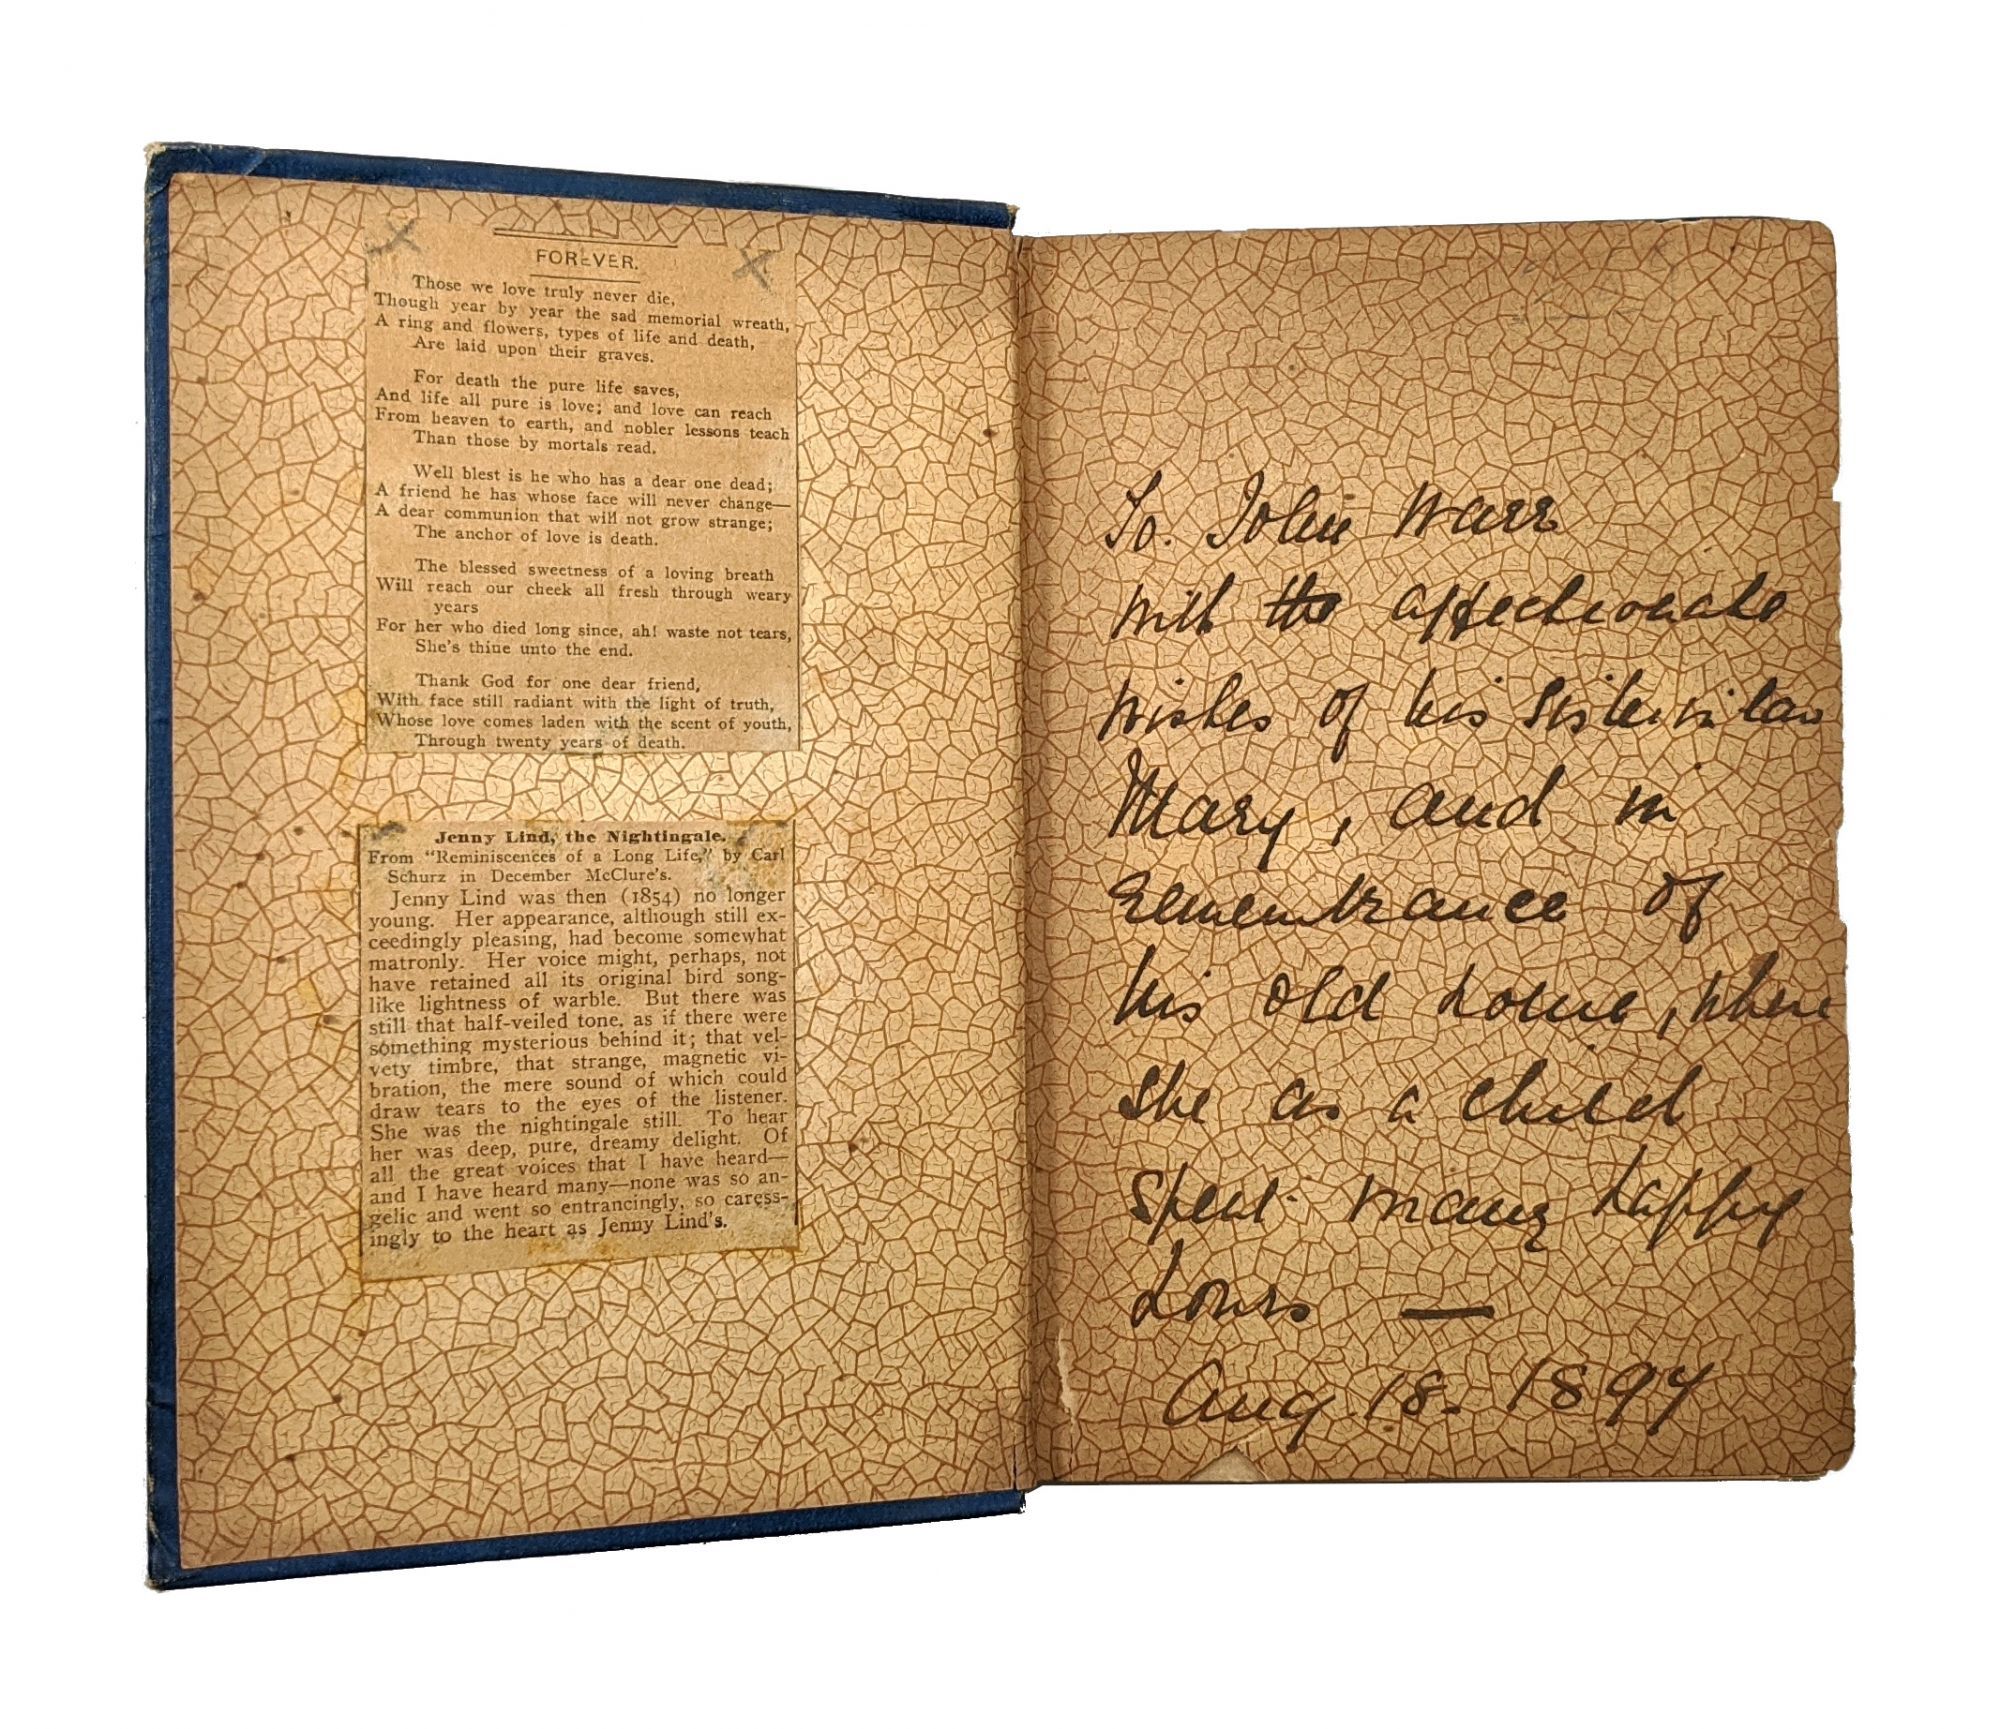 FOREVER.
Those we love truly never die,
Though year by year the sad memorial wreath,
A ring and flowers, types of life and death,
Are laid upon their graves.
For death the pure life saves,
And life all pure is love; and love can reach
From heaven to earth, and nobler lessons teach
Than those by mortals read.
Well blest is he who has a dear one dead;
A friend he has whose face will never change—
A dear communion that will not grow strange;
The anchor of love is death.
The blessed sweetness of a loving breath
Will reach our cheek all fresh through weary
years
For her who died long since, ah! waste not tears,
She's thine unto the end.
Thank God for one dear friend,
With face still radiant with the light of truth,
Whose love comes laden with the scent of youth,
Through twenty years of death.
Jenny Lind, the Nightingale.
From "Reminiscences of a Long Life," by Carl
Schurz in December McClure's.
Jenny Lind was then (1854) no longer
young. Her appearance, although still ex-
ceedingly pleasing, had become somewhat
matronly. Her voice might, perhaps, not
have retained all its original bird song-
like lightness of warble. But there was
still that half-veiled tone, as if there were
something mysterious behind it; that vel-
vety timbre, that strange, magnetic vi-
bration, the mere sound of which could
draw tears to the eyes of the listener.
She was the nightingale still. To hear
her was deep, pure, dreamy delight. Of
all the great voices that I have heard—
and I have heard many—none was so an-
gelic and went so entrancingly, so caress-
ingly to the heart as Jenny Lind's.
To. John Warr
with the affectionate
wishes of his sister in law
Mary, and in
remembrance of
his old home, where
she as a child
spent many happy
hours —
Aug. 18. 1897